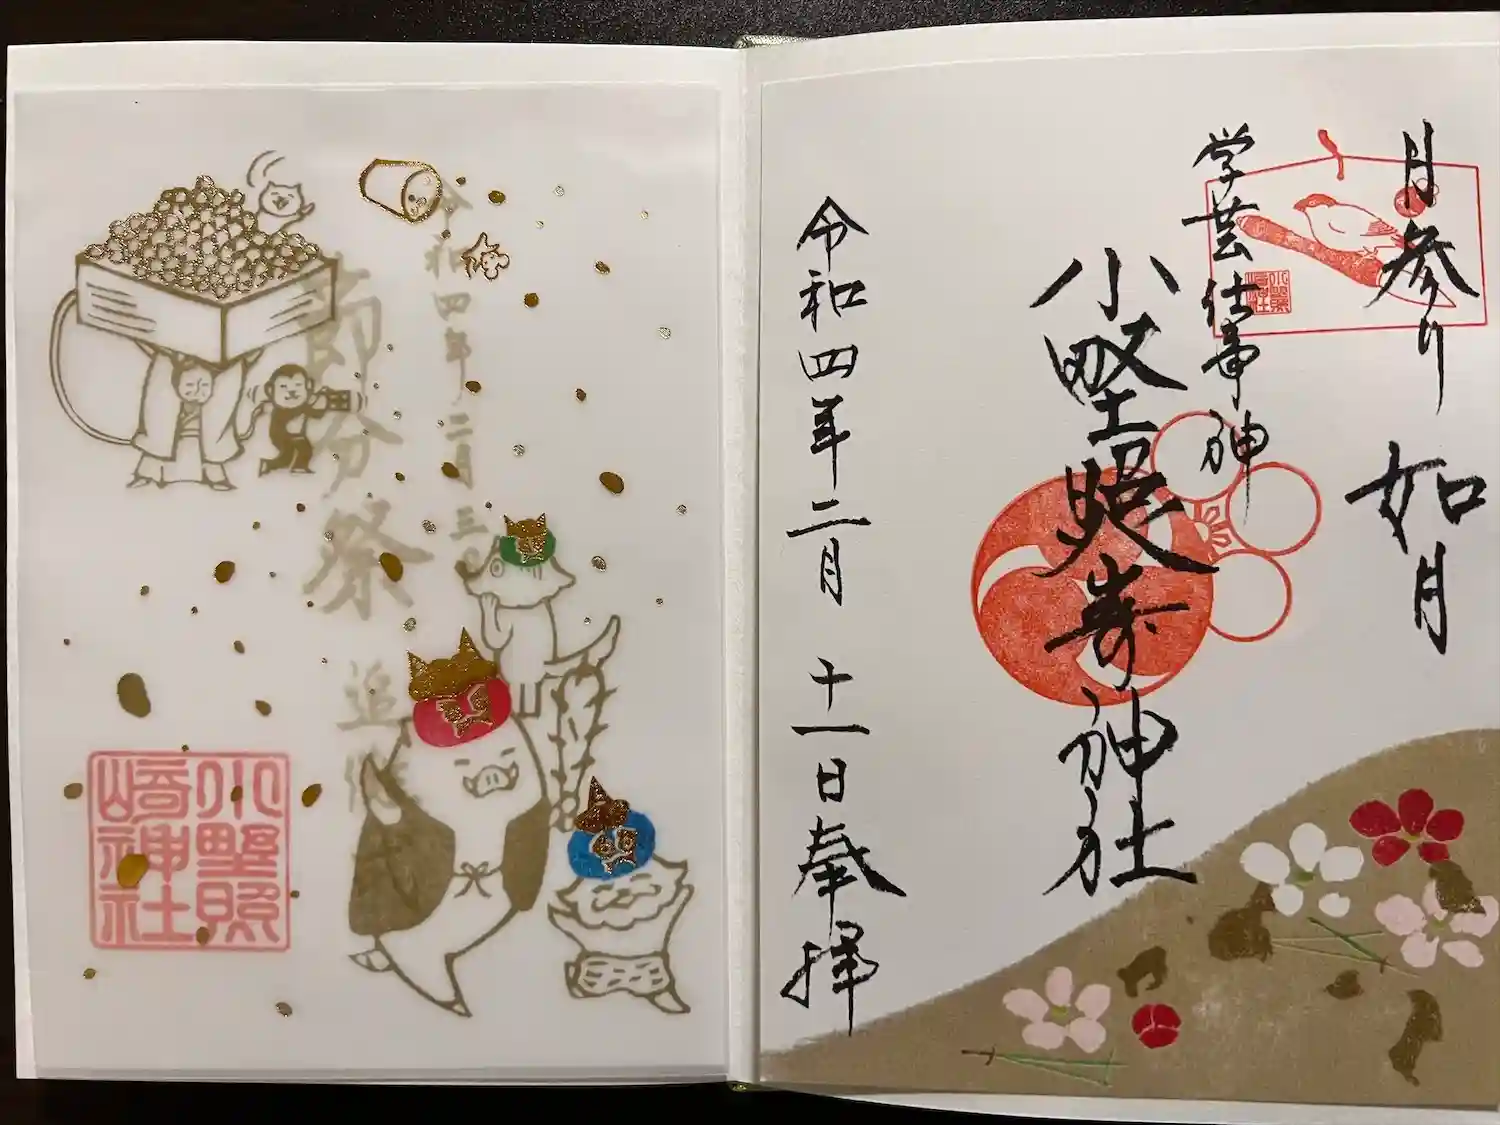 月参り 如月
学芸仕事神
小野照崎神社
令和四年二月十一日奉拝
令和四年二月三日
節分祭 追儺
小野照
崎神社
小野照
崎神社